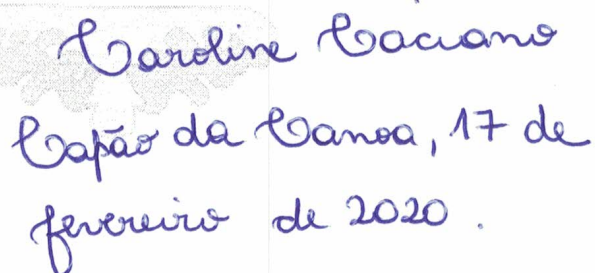 Caroline Caciano
Capão da Canoa, 17 de
fevereiro de 2020.